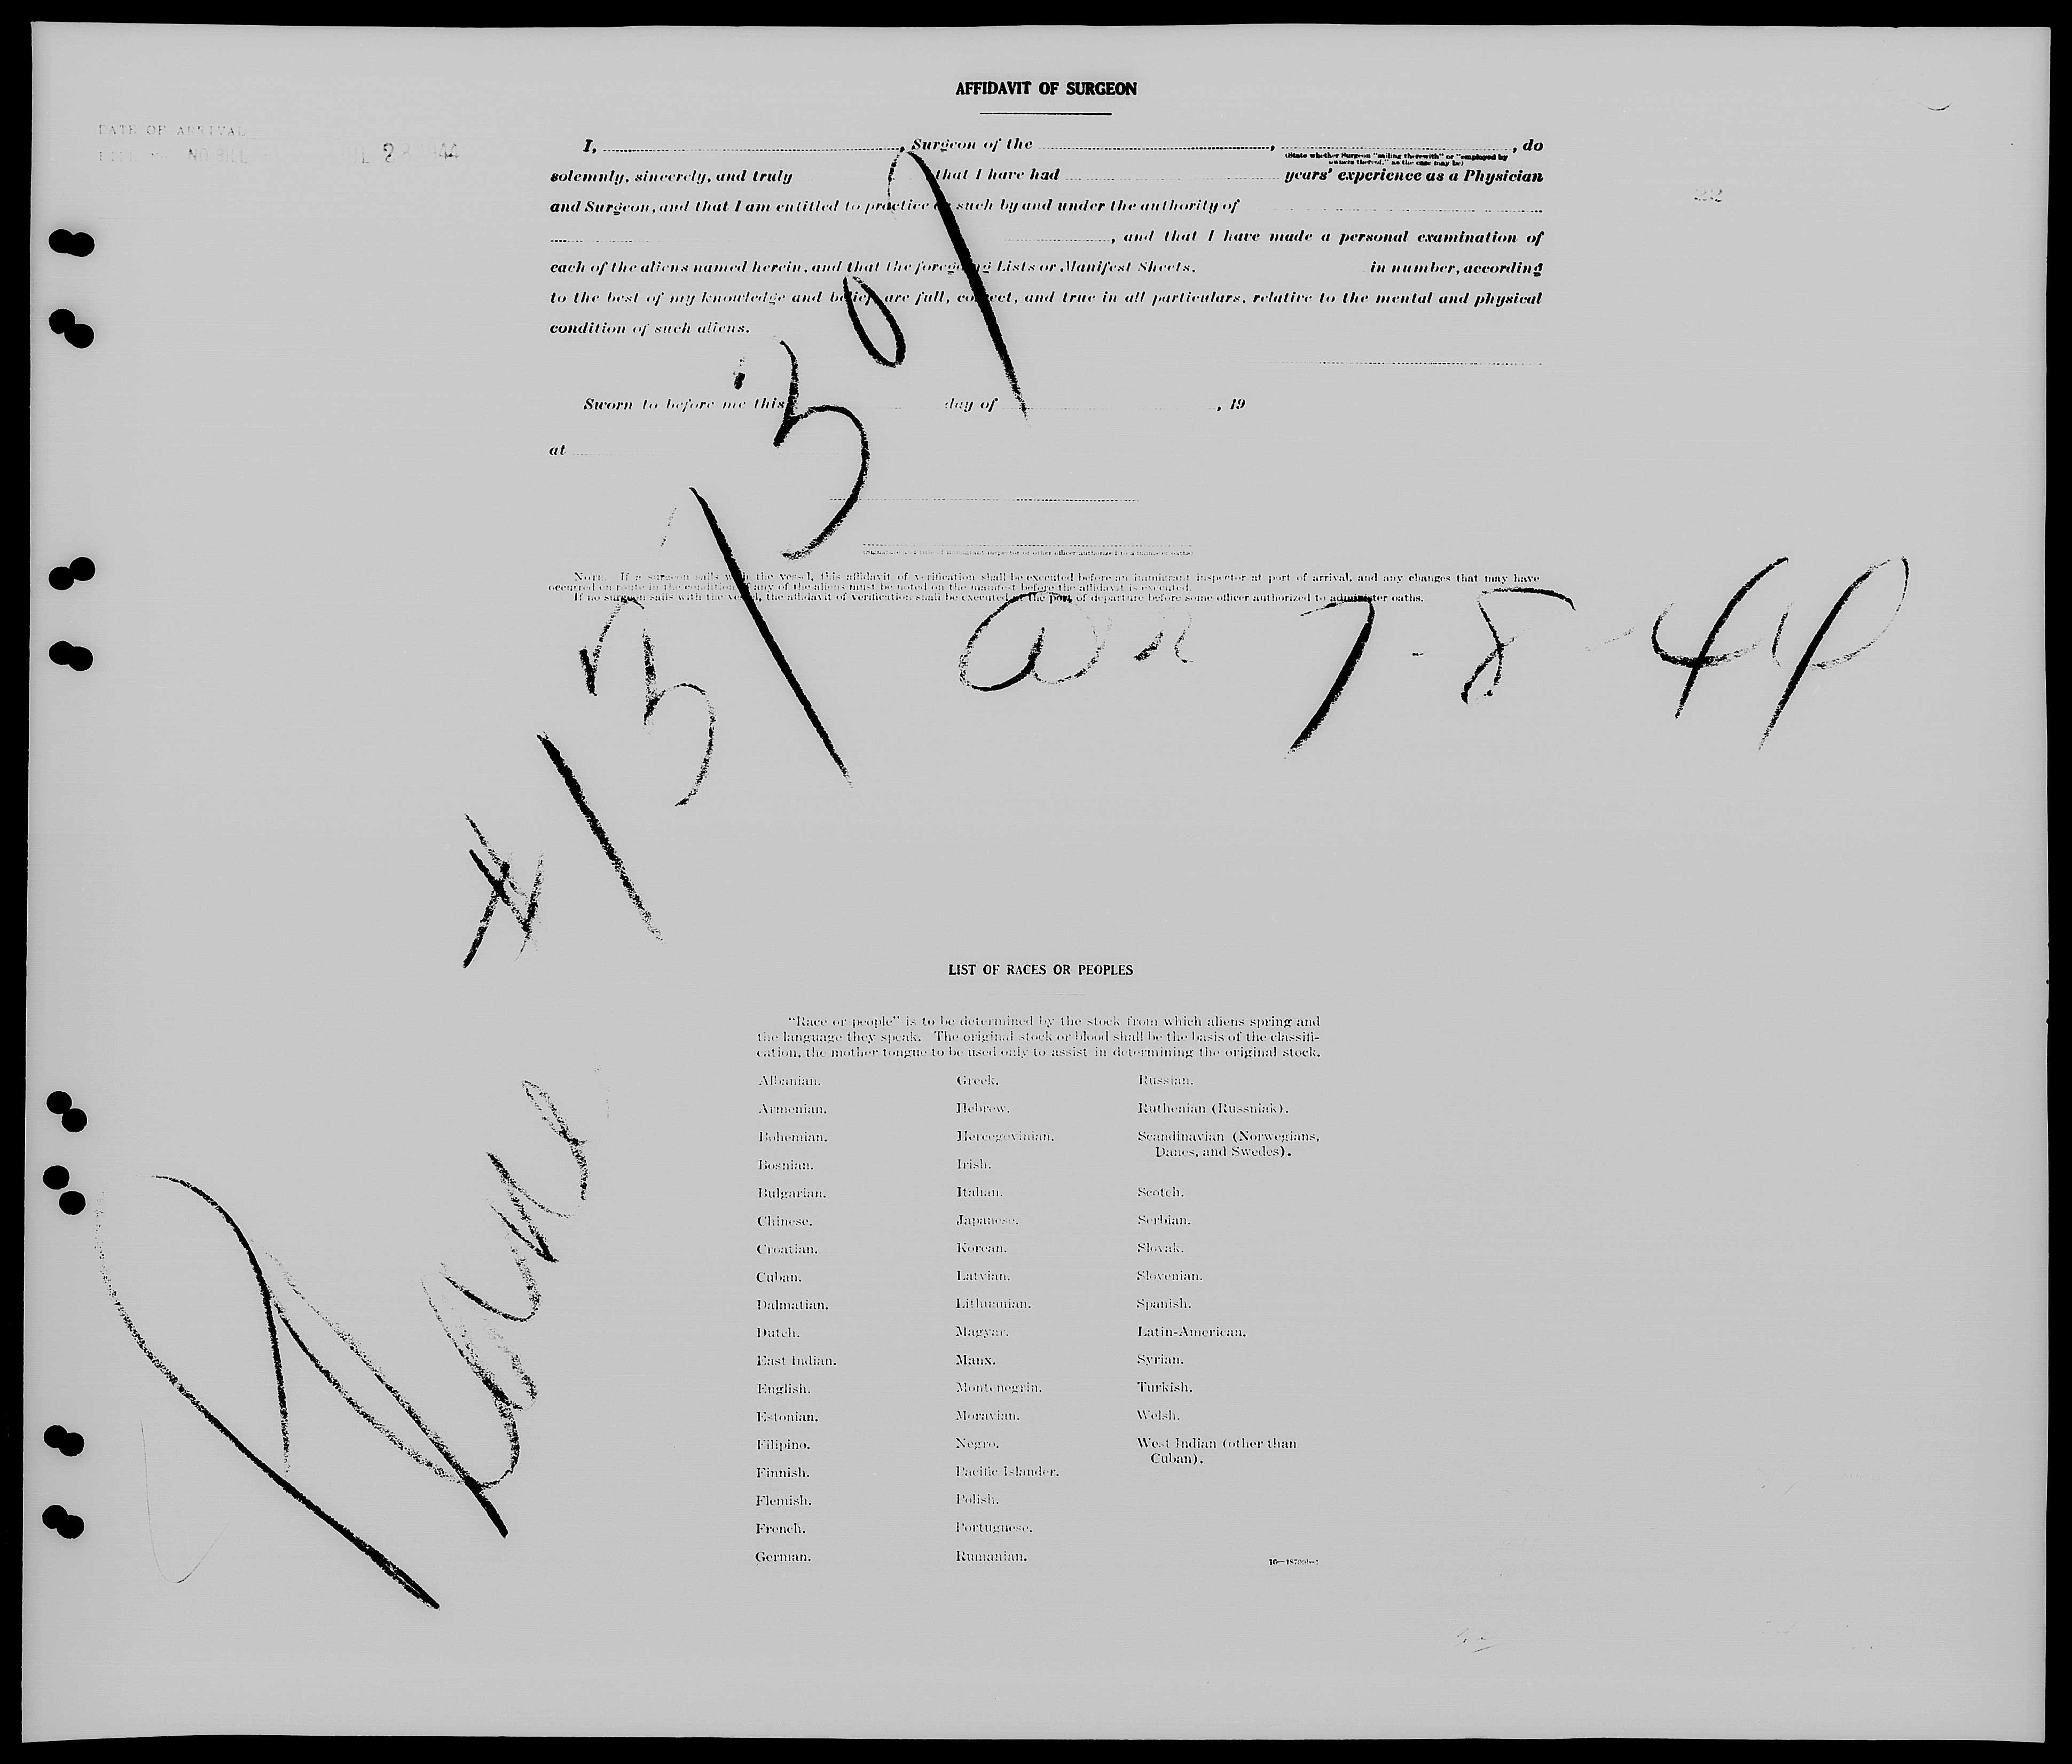 AFFIDAVIT OF SURGEON
DATE OF ARRIVAL
NO BILL 28 1944
I, , Surgeon of the , , do
(State whether Surgeon "sailing therewith" or "employed by owners thereof," as the case may be)
solemnly, sincerely, and truly that I have had years' experience as a Physician
and Surgeon, and that I am entitled to practice as such by and under the authority of
, and that I have made a personal examination of
each of the aliens named herein, and that the foregoing Lists or Manifest Sheets, in number, according
to the best of my knowledge and belief, are full, correct, and true in all particulars, relative to the mental and physical
condition of such aliens.
Sworn to before me this day of , 19
at
(Signature and title of immigrant inspector or other officer authorized to administer oaths)
NOTE. If a surgeon sails with the vessel, this affidavit of verification shall be executed before an immigrant inspector at port of arrival, and any changes that may have
occurred en route in the condition of any of the aliens must be noted on the manifest before the affidavit is executed.
If no surgeon sails with the vessel, the affidavit of verification shall be executed at the port of departure before some officer authorized to administer oaths.
# 131301
7-8-44
Plane
LIST OF RACES OR PEOPLES
"Race or people" is to be determined by the stock from which aliens spring and
the language they speak. The original stock or blood shall be the basis of the classifi-
cation, the mother tongue to be used only to assist in determining the original stock.
Albanian.
Armenian.
Bohemian.
Bosnian.
Bulgarian.
Chinese.
Croatian.
Cuban.
Dalmatian.
Dutch.
East Indian.
English.
Estonian.
Filipino.
Finnish.
Flemish.
French.
German.
Greek.
Hebrew.
Hercegovinian.
Irish.
Italian.
Japanese.
Korean.
Latvian.
Lithuanian.
Magyar.
Manx.
Montenegrin.
Moravian.
Negro.
Pacific Islander.
Polish.
Portuguese.
Rumanian.
Russian.
Ruthenian (Russniak).
Scandinavian (Norwegians,
Danes, and Swedes).
Scotch.
Serbian.
Slovak.
Slovenian.
Spanish.
Latin-American.
Syrian.
Turkish.
Welsh.
West Indian (other than
Cuban).